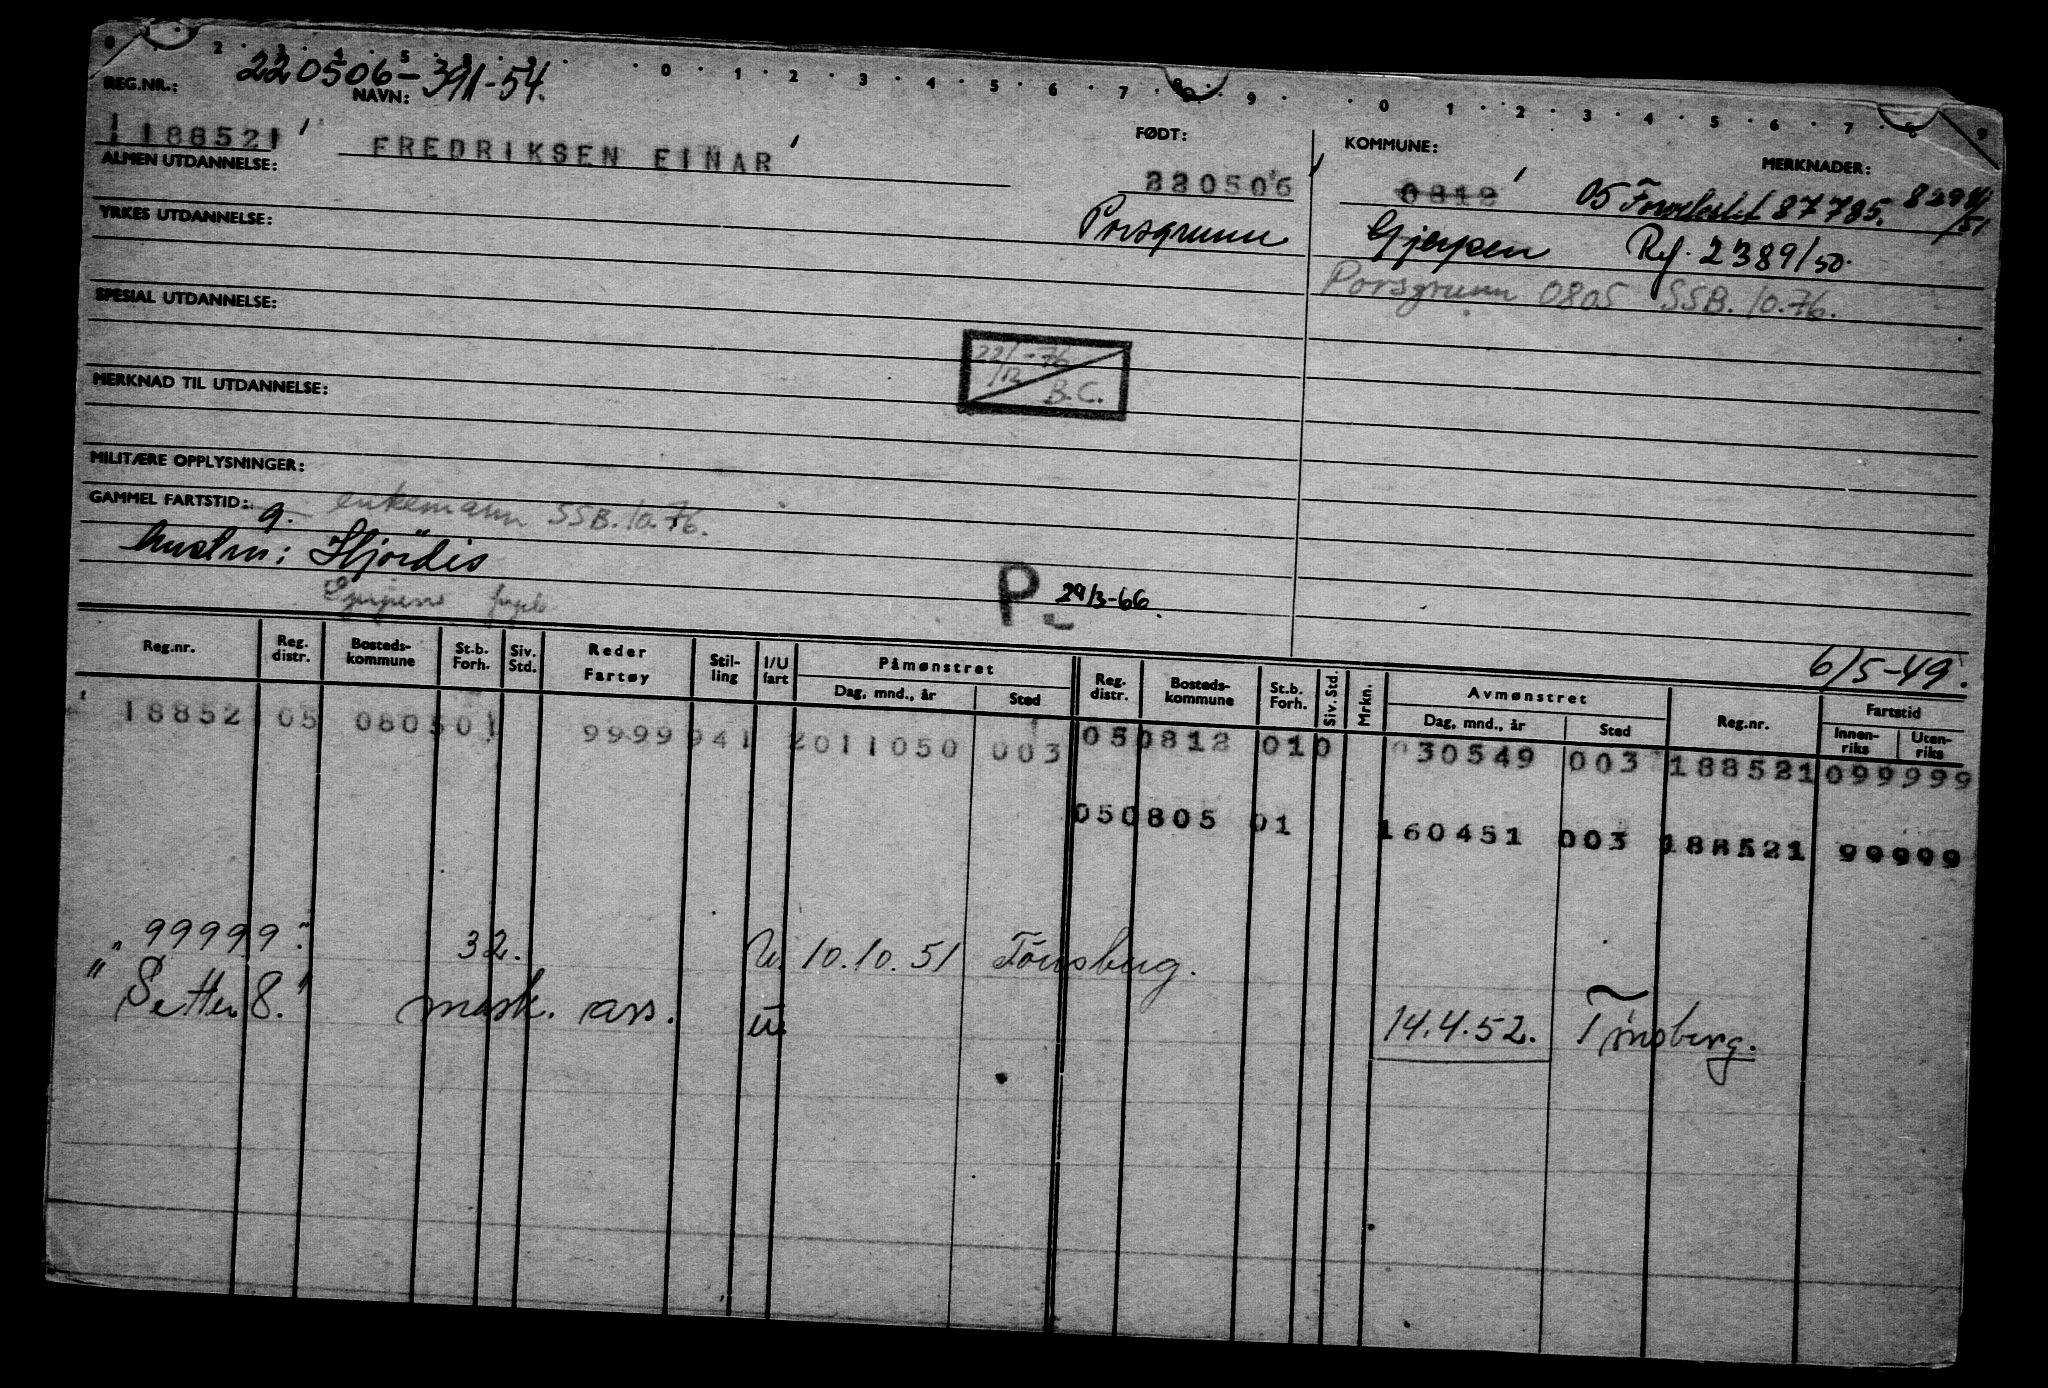 0 1 2 3 4 5 0 1 2 3 4 5 6 7 8 9 0 1 2 3 4 5 6 7 8 9
220506-391-54.
REG.NR.: NAVN: FØDT: KOMMUNE: MERKNADER:
188521 FREDRIKSEN EINAR 220506 0812 05 87785. 829
ALMEN UTDANNELSE: Porsgrunn Gjerpen Ref. 2389/50.
YRKES UTDANNELSE:
Porsgrunn 0805 SSB. 10.76.
SPESIAL UTDANNELSE:
22/12-76 B.C.
MERKNAD TIL UTDANNELSE:
MILITÆRE OPPLYSNINGER:
GAMMEL FARTSTID: g. enkemann SSB. 10.76.
hustru: Hjördis
P 29/3-66.
6/5-49.
Reg.nr. Reg. distr. Bosteds-kommune St.b. Forh. Siv. Std. Reder Fartøy Stil-ling I/U fart Påmønstret Dag, mnd., år Sted Reg. distr. Bosteds-kommune St.b. Forh. Siv. Std. Mrkn. Avmønstret Dag, mnd., år Sted Reg.nr. Fartstid Innen-riks Uten-riks
18852 05 0805 01 9999 941 2011050 003 050812 010 030549 003 188521 099999
050805 01 160451 003 188521 99999
"99999" 32. U. 10.10.51 Tönsberg.
"Setter 8." mask. ass. u. 14.4.52. Tønsberg.